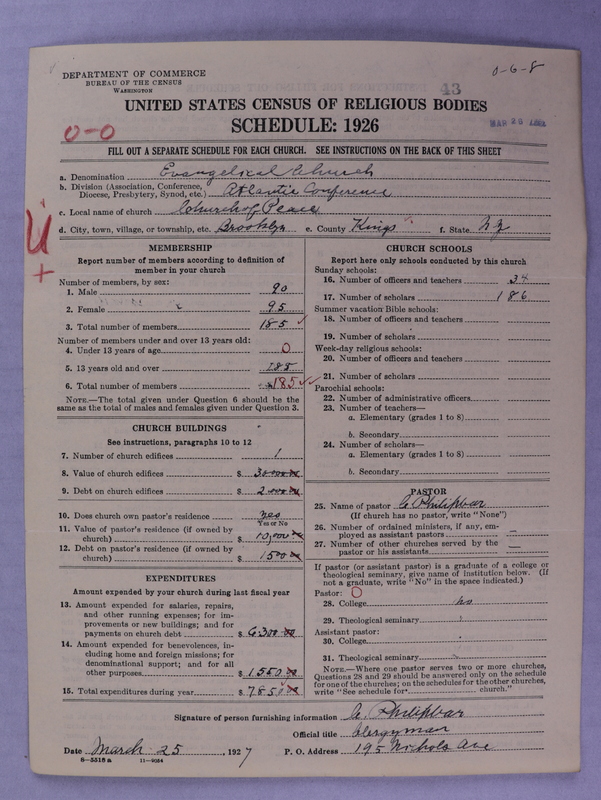 0-6-8
DEPARTMENT OF COMMERCE
BUREAU OF THE CENSUS
WASHINGTON
43
UNITED STATES CENSUS OF RELIGIOUS BODIES
SCHEDULE: 1926
0-0
MAR 26
FILL OUT A SEPARATE SCHEDULE FOR EACH CHURCH. SEE INSTRUCTIONS ON THE BACK OF THIS SHEET
a. Denomination Evangelical Church
b. Division (Association, Conference, Diocese, Presbytery, Synod, etc.) Atlantic Conference
c. Local name of church Church of Peace
d. City, town, village, or township, etc. Brooklyn e. County Kings f. State N Y
MEMBERSHIP
Report number of members according to definition of
member in your church
Number of members, by sex:
1. Male 90
2. Female 95
3. Total number of members 185
Number of members under and over 13 years old:
4. Under 13 years of age 0
5. 13 years old and over 185
6. Total number of members 185
NOTE.—The total given under Question 6 should be the
same as the total of males and females given under Question 3.
CHURCH BUILDINGS
See instructions, paragraphs 10 to 12
7. Number of church edifices 1
8. Value of church edifices $ 30 000 00
9. Debt on church edifices $ 2 000 00
10. Does church own pastor's residence yes
Yes or No
11. Value of pastor's residence (if owned by
church) $ 10,000 00
12. Debt on pastor's residence (if owned by
church) $ 1500 00
EXPENDITURES
Amount expended by your church during last fiscal year
13. Amount expended for salaries, repairs,
and other running expenses; for im-
provements or new buildings; and for
payments on church debt $ 6 300 00
14. Amount expended for benevolences, in-
cluding home and foreign missions; for
denominational support; and for all
other purposes $ 1550 00
15. Total expenditures during year $ 7850 00
CHURCH SCHOOLS
Report here only schools conducted by this church
Sunday schools:
16. Number of officers and teachers 34
17. Number of scholars 186
Summer vacation Bible schools:
18. Number of officers and teachers
19. Number of scholars
Week-day religious schools:
20. Number of officers and teachers
21. Number of scholars
Parochial schools:
22. Number of administrative officers
23. Number of teachers—
a. Elementary (grades 1 to 8)
b. Secondary
24. Number of scholars—
a. Elementary (grades 1 to 8)
b. Secondary
PASTOR
25. Name of pastor C. Philipbar
(If church has no pastor, write "None")
26. Number of ordained ministers, if any, em-
ployed as assistant pastors —
27. Number of other churches served by the
pastor or his assistants —
If pastor (or assistant pastor) is a graduate of a college or
theological seminary, give name of institution below. (If
not a graduate, write "No" in the space indicated.)
Pastor: 0
28. College no
29. Theological seminary
Assistant pastor:
30. College
31. Theological seminary
NOTE.—Where one pastor serves two or more churches,
Questions 28 and 29 should be answered only on the schedule
for one of the churches; on the schedules for the other churches,
write "See schedule for church."
Signature of person furnishing information C. Philipbar
Official title Clergyman
Date March 25, 1927 P. O. Address 195 Nichols Ave
8-5518a 11-9034